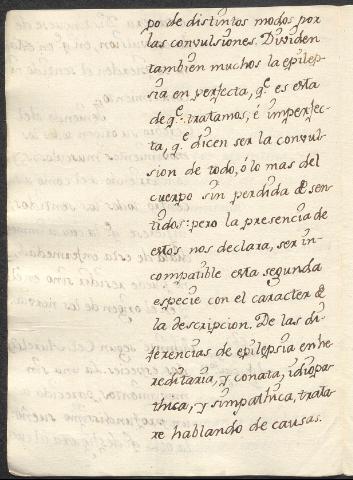 po de distintos modos por
las convulsiones. Dividen
tambien muchos la epilep-
sia en perfecta, qe. es esta
de qe. tratamos, é imperfec-
ta, qe. dicen ser la convul-
sion de todo, ó lo mas del
cuerpo sin perdida de sen-
tidos: pero la presencia de
estos nos declara, ser in-
compatible esta segunda
especie con el caracter de
la descripcion. De las di-
ferencias de epilepsia en he-
reditaria, y conata, idiopa-
thica, y simpathica, trata-
re hablando de causas.